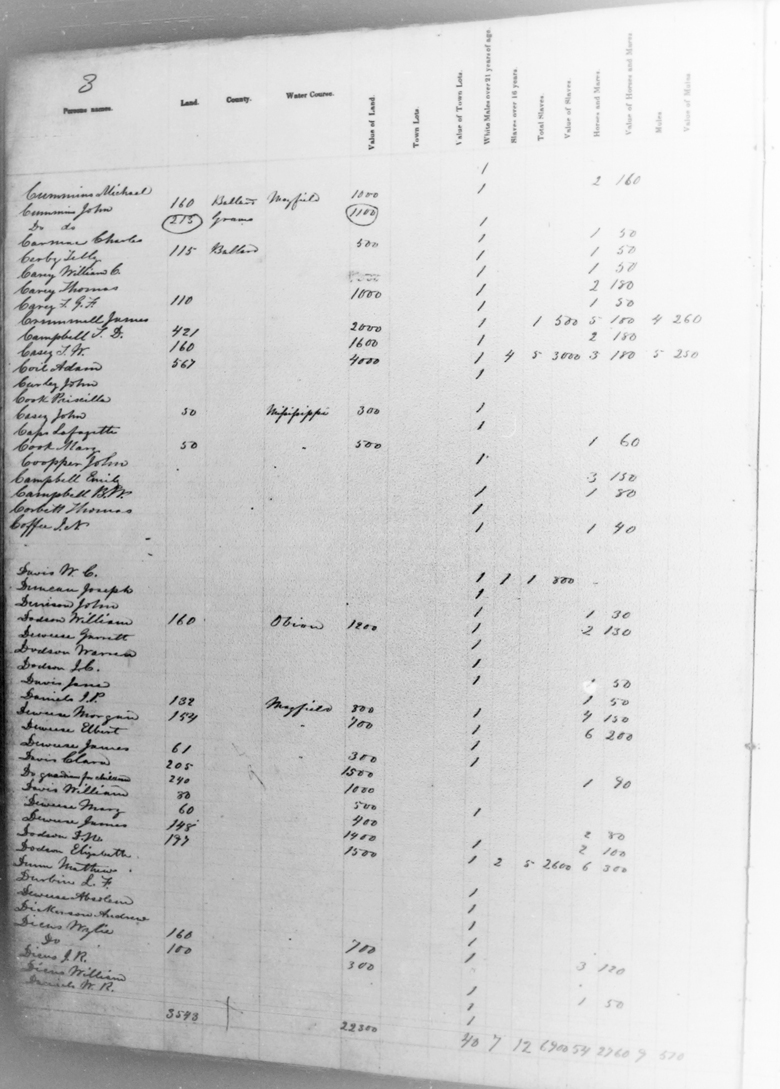 8
Persons names. Land. County. Water Course. Value of Land. Town Lots. Value of Town Lots. White Males over 21 years of age. Slaves over 16 years. Total Slaves. Value of Slaves. Horses and Mares. Value of Horses and Mares Mules Value of Mules
Cummins Michael 1
Cummins John 160 Ballard Mayfield 1000 1 2 160
Do do 215 Graves 1100
Carmac Charles 1
115 Ballard 500 1 1 50
Carey William C. 1 1 50
Carey Thomas 1 1 50
Carey 110 1000 1 2 180
Crummwell James 1 1 50
Campbell 421 2000 1 1 500 5 100 4 260
Casey T. W. 160 1600 1 2 180
Coil Adam 567 4000 1 4 5 3000 3 180 5 250
Curley John 1
Cook Priscilla
Casey John 50 Missisippi 300 1
Caps Lafayette 1
Cook Mary 50 500 1 60
Coopper John 1
Campbell Emily 3 150
Campbell 1 1 80
Corbett Thomas 1
Coffee 1 1 40
Davis W. C. 1 1 1 800
Duncan Joseph 1
Denison John 1
Dodson William 160 Obion 1200 1 1 30
Deweese Garrett 1 2 130
Dodson Warren 1
Dodson J. C. 1
Davis Jane 1 50
Daniels J. P. 132 Mayfield 800 1 1 50
Deweese Morgan 154 700 1 4 150
Deweese Elbert 1 6 200
Deweese James 61 300 1
Davis Clara 205 1500
Do guardian for children 240 1000 1 90
Davis William 80 500
Deweese Mary 60 400
Deweese James 148 1400 2 80
Dodson 197 1500 1 2 100
Dodson Elizabeth
Dunn Mathew 1 2 5 2600 6 300
Durbin L. F. 1
Deweese Abselem 1
Dickerson Andrew 1
Dicus Wylie 160 700 1
Do 100 300
Dicus J. R. 3 120
Dicus William 1 1 50
Daniels W. R. 1
3543 22300 40 7 12 6900 54 2760 9 510